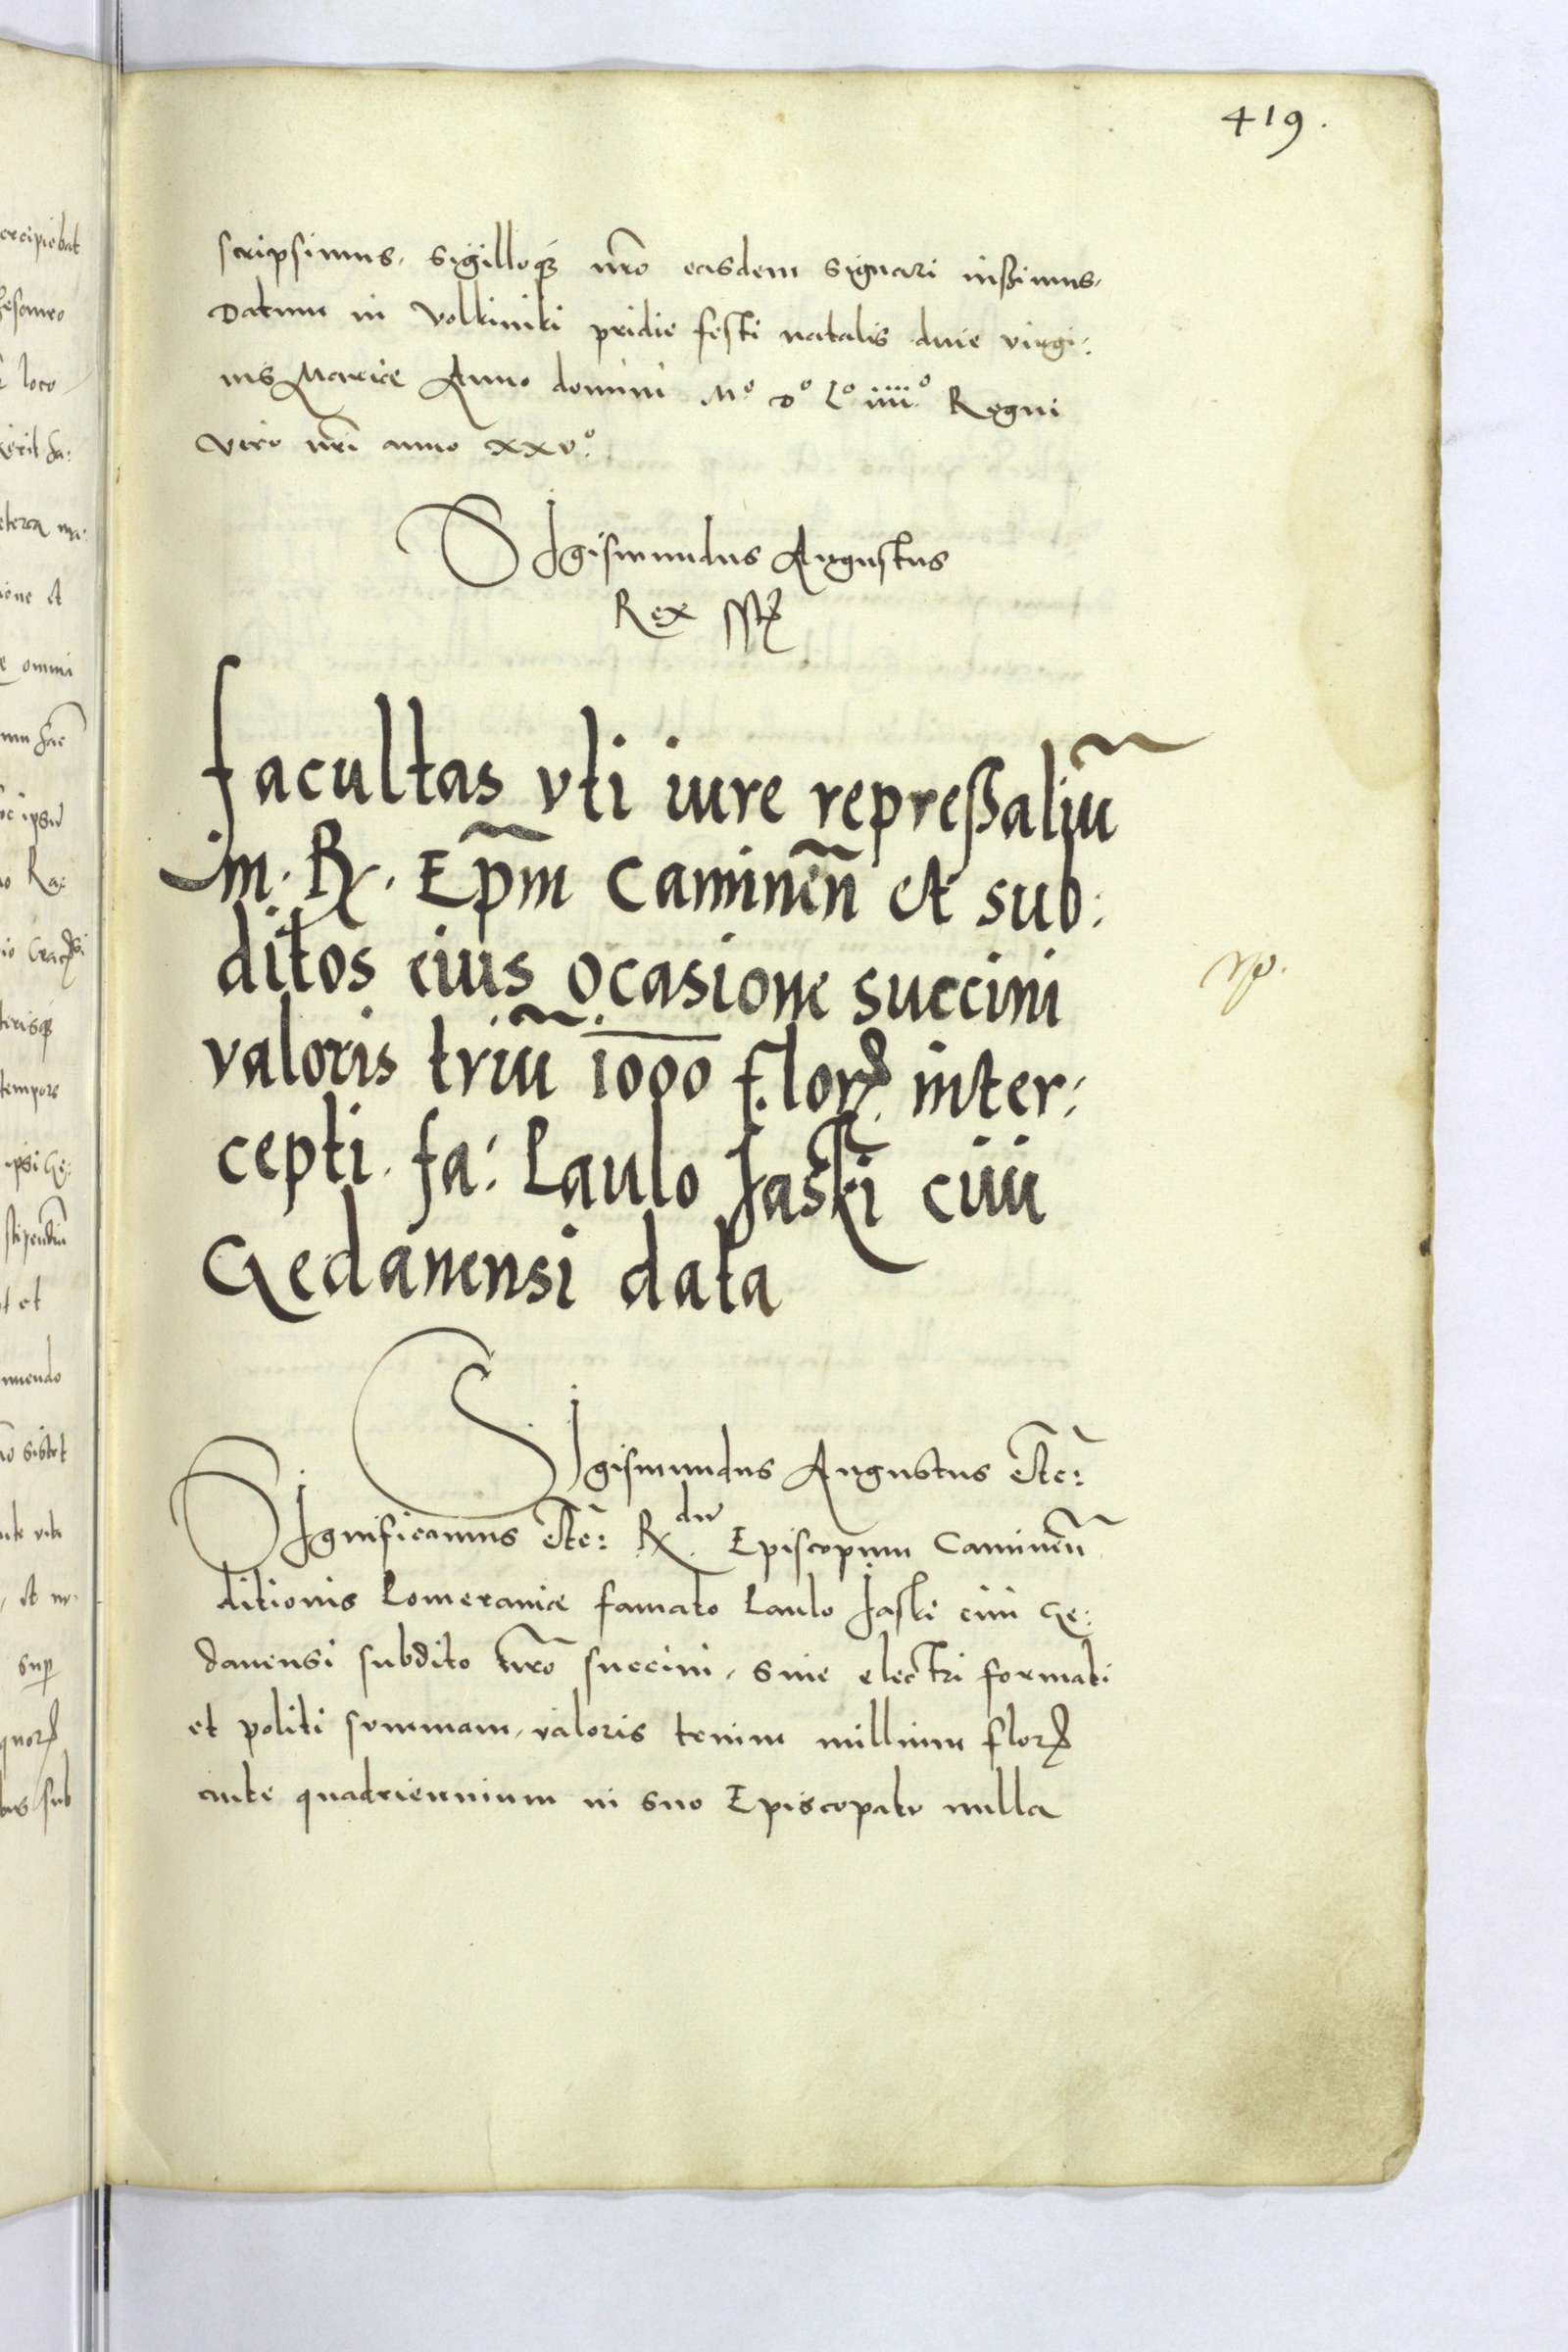 419.
scripsimus, sigilloq3 nr̃o easdem signari iußimus,
Datum in Volkiniki pridie festi natalis diuę virgi:
nis Marię Anno domini Mº Dº Lº iiiiº Regni
vero nr̃i anno xxvº.
SIgismundus Augustus
Rex sst
facultas vti iure repreßaliũ
in. Rx. Ep̃m Caminẽn et sub:
ditos eius ocasione succini
valoris triũ 1000 flor. inter:
cepti. fa: Paulo Jaski ciui
Gedanensi data
SIgismundus Augustus etc̃:
SIgnificamus etc̃: Rx dũ Episcopum Caminẽn
ditionis Pomeranię famato Paulo Jaski ciui Ge:
danensi subdito nr̃o succini, siue electri formati
et politi summam, valoris trium millium flor
ante quadriennium in suo Episcopatu nulla